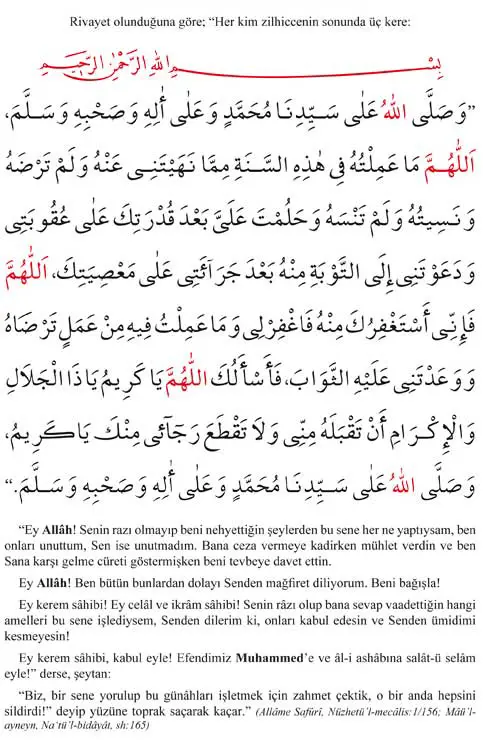 Rivayet olunduğuna göre; “Her kim zilhiccenin sonunda üç kere:
بِسْمِ اللهِ الرَّحْمٰنِ الرَّحِيمِ
”وَصَلَّى اللهُ عَلٰى سَيِّدِنَا مُحَمَّدٍ وَعَلٰى أٰلِهِ وَصَحْبِهِ وَسَلَّمَ،
اَللّٰهُمَّ مَا عَمِلْتُهُ فِي هٰذِهِ السَّنَةِ مِمَّا نَهَيْتَنِي عَنْهُ وَلَمْ تَرْضَهُ
وَنَسِيتُهُ وَلَمْ تَنْسَهُ وَحَلُمْتَ عَلَيَّ بَعْدَ قُدْرَتِكَ عَلٰى عُقُوبَتِي
وَدَعَوْتَنِي إِلَى التَّوْبَةِ مِنْهُ بَعْدَ جَرَآئَتِي عَلٰى مَعْصِيَتِكَ، اَللّٰهُمَّ
فَإِنِّي أَسْتَغْفِرُكَ مِنْهُ فَاغْفِرْلِي وَمَا عَمِلْتُ فِيهِ مِنْ عَمَلٍ تَرْضَاهُ
وَوَعَدْتَنِي عَلَيْهِ الثَّوَابَ، فَأَسْأَلُكَ اللّٰهُمَّ يَا كَرِيمُ يَاذَا الْجَلَالِ
وَالْإِكْرَامِ أَنْ تَقْبَلَهُ مِنِّي وَلَا تَقْطَعَ رَجَآئِي مِنْكَ يَاكَرِيمُ،
وَصَلَّى اللهُ عَلٰى سَيِّدِنَا مُحَمَّدٍ وَعَلٰى أٰلِهِ وَصَحْبِهِ وَسَلَّمَ.“
“Ey Allâh! Senin razı olmayıp beni nehyettiğin şeylerden bu sene her ne yaptıysam, ben
onları unuttum, Sen ise unutmadım. Bana ceza vermeye kadirken mühlet verdin ve ben
Sana karşı gelme cüreti göstermişken beni tevbeye davet ettin.
Ey Allâh! Ben bütün bunlardan dolayı Senden mağfiret diliyorum. Beni bağışla!
Ey kerem sâhibi! Ey celâl ve ikrâm sâhibi! Senin râzı olup bana sevap vaadettiğin hangi
amelleri bu sene işlediysem, Senden dilerim ki, onları kabul edesin ve Senden ümidimi
kesmeyesin!
Ey kerem sâhibi, kabul eyle! Efendimiz Muhammed’e ve âl-i ashâbına salât-ü selâm
eyle!” derse, şeytan:
“Biz, bir sene yorulup bu günâhları işletmek için zahmet çektik, o bir anda hepsini
sildirdi!” deyip yüzüne toprak saçarak kaçar.” (Allâme Safûrî, Nüzhetü’l-mecâlis:1/156; Mâü’l-
ayneyn, Na‘tü’l-bidâyât, sh:165)